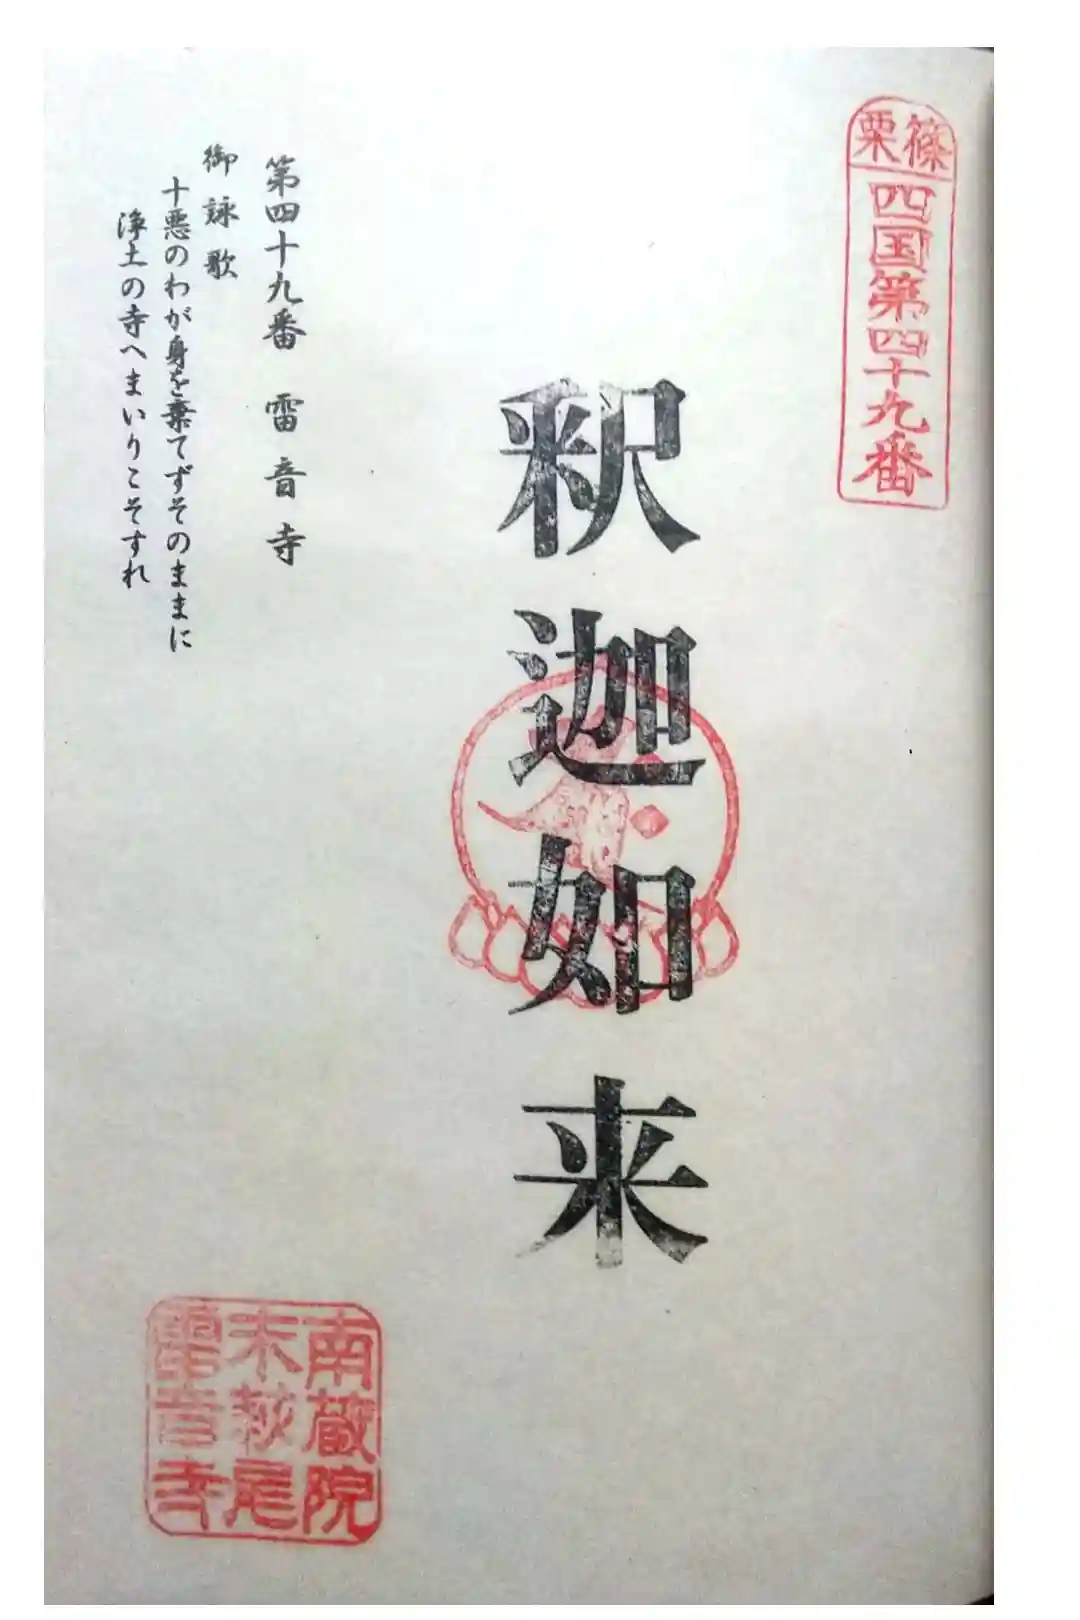 篠栗
四国第四十九番
釈迦如来
第四十九番 雷音寺
御詠歌
十悪のわが身を棄てずそのままに
浄土の寺へまいりこそすれ
南蔵院
末萩尾
雷音寺